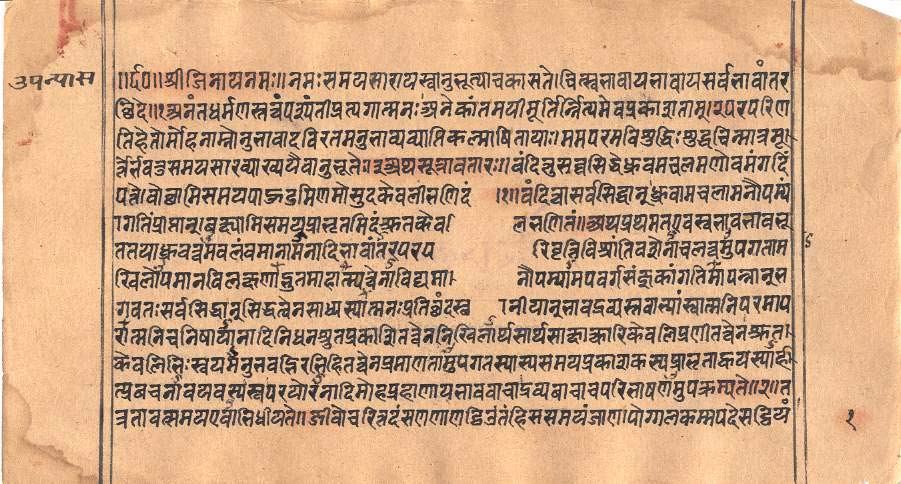 उपन्यास
॥र्द०॥ श्रीजिनाय नमः॥ नमः समयसाराय स्वानुभूत्या चकासते॥ चित्स्वभावाय भावाय सर्वभावांतर
छिदे॥१ अनंतधर्मणस्तत्वं पश्यंती प्रत्यगात्मनः अनेकांतमयी मूर्तिर्नित्यमेव प्रकाशताम्॥२ परपरिण
तिहेतोर्मोहनाम्नोनुभावादविरतमनुभाव्यव्याप्तिकल्माषितायाः। मम परमविशुद्धिः शुद्धचिन्मात्रमू
र्त्तेर्भवतु समयसारव्याख्ययैवानुभूतेः॥३ अथ सूत्रावतारः॥ वंदितु सव्वसिद्धे ध्रुवमचलमणोवमं गदिं
पत्ते वोच्छामि समयपाहुडमिणमो सुदकेवलीभणिदं ॥१॥ वंदित्वा सर्वसिद्धान् ध्रुवामचलामनौपम्यां
गतिं प्राप्तान्। वक्ष्यामि समयप्राभृतमिदं श्रुतकेव लिभणितं॥ अथ प्रथमत एव स्वभावभावभू
ततया ध्रुवत्वमवलंबमानामनादिभावांतरपरप रिवृत्तिविश्रांतिवशेनाचलत्वमुपगताम
खिलोपमानविलक्षणाद्भुतमाहात्म्यत्वेनाविद्यमा नौपम्यामपवर्गसंज्ञकां गतिमापन्नान् भ
गवतः सर्वसिद्धान् सिद्धत्वेन साध्यस्यात्मनः प्रतिच्छंदस्था नीयान् भावद्रव्यस्तवाभ्यां स्वात्मनि परमाप
रात्मनि च निधायानादिनिधनश्रुतप्रकाशितत्वेन निखिलार्थसार्थसाक्षात्कारिकेवलिप्रणीतत्वेन श्रुत
केवलिभिः स्वयमनुभवद्भिरभिहितत्वेन प्रमाणतामुपगतस्यास्य समयप्रकाशकस्य प्राभृताकयस्यार्ह
त्प्रवचनावयवस्य स्वपरयोरनादिमोहप्रहाणाय भाववाचा द्रव्यवाचा च परिभाषणमुपक्रम्यते॥१॥ त
त्र तावत्समय एवाभिधीयते॥ जीवो चरित्तदंसणणाणट्ठिउ तं हि ससमयं जाण। पोग्गलकम्मपदेसट्ठियं
१